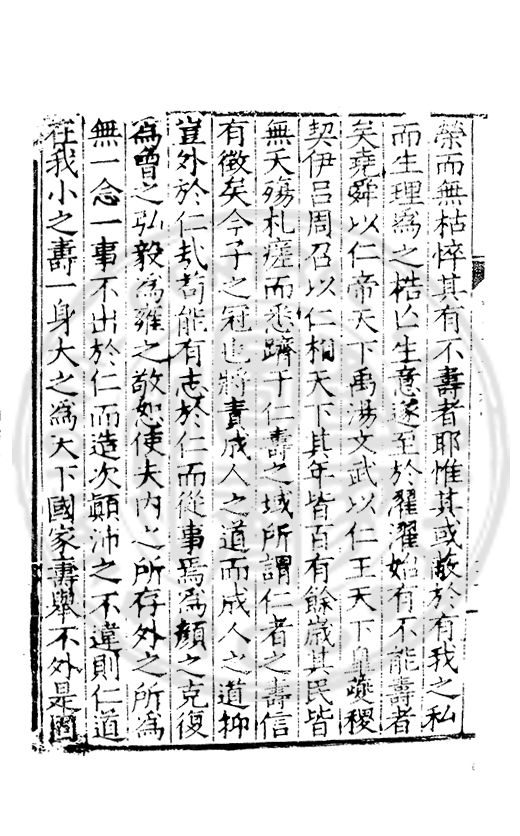 榮而無枯悴其有不壽者耶惟其或蔽於有我之私
而生理爲之梏亡生意遂至於濯濯始有不能壽者
矣堯舜以仁帝天下禹湯文武以仁王天下皐䕫稷
契伊吕周召以仁相天下其年皆百有餘歲其民皆
無夭殤札瘥而悉躋于仁壽之域所謂仁者之壽信
有徵矣今子之冠也將責成人之道而成人之道抑
豈外於仁哉苟能有志於仁而從事焉爲顔之克復
爲曾之弘毅爲雍之敬恕使夫内之所存外之所爲
無一念一事不出於仁而造次顚沛之不違則仁道
在我小之壽一身大之爲天下國家壽舉不外是